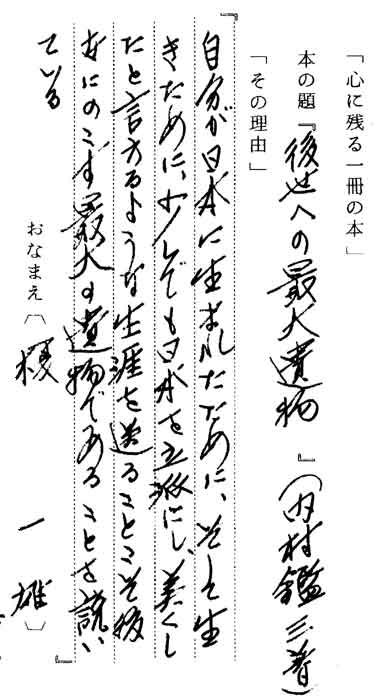 「心に残る一冊の本」
本の題『後世への最大遺物』(内村鑑三著)
「その理由」
自分が日本に生まれたために、そして生
きたために、少しでも日本を立派にし、美くし
たと言えるような生涯を送ることこそ後
世にのこす最大の遺物であることを説い
ている
おなまえ〔榎 一雄〕